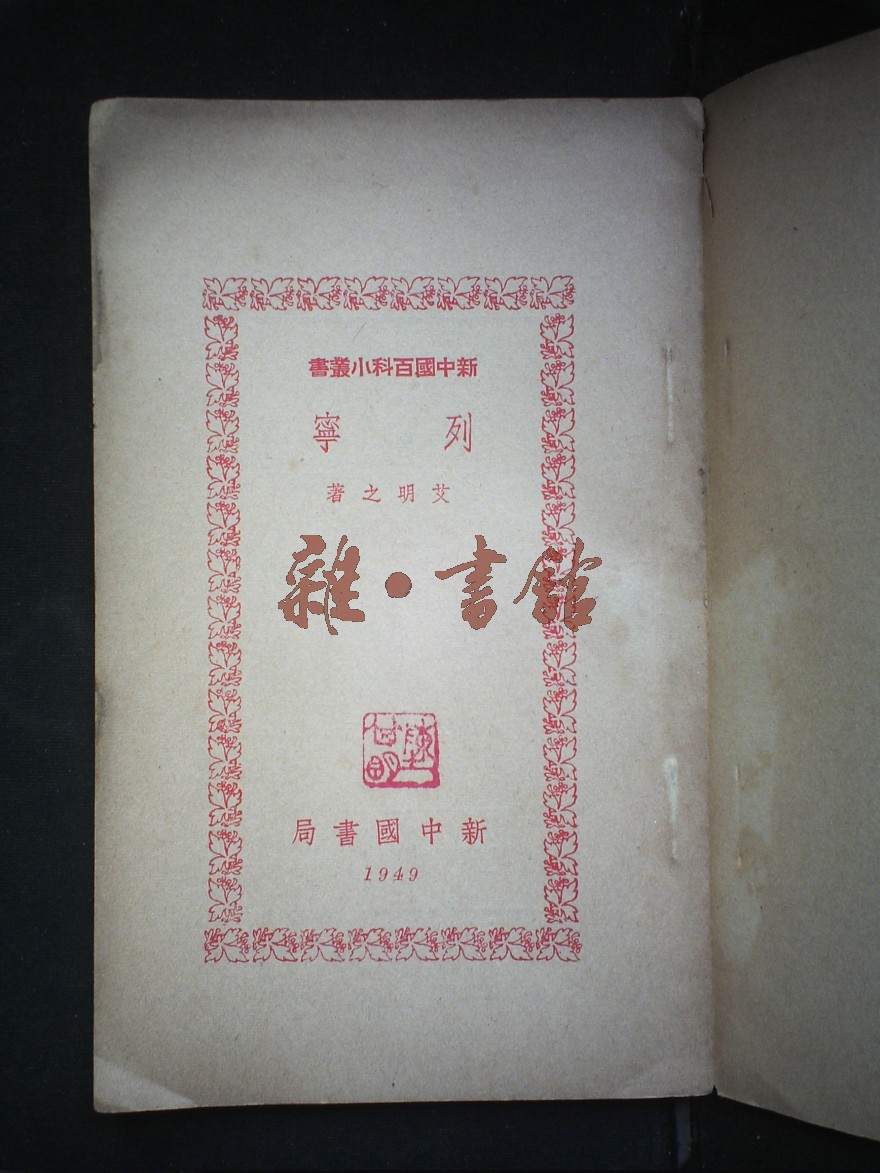 新中國百科小叢書
列寧
艾明之著
雜·書館
新中國書局
1949